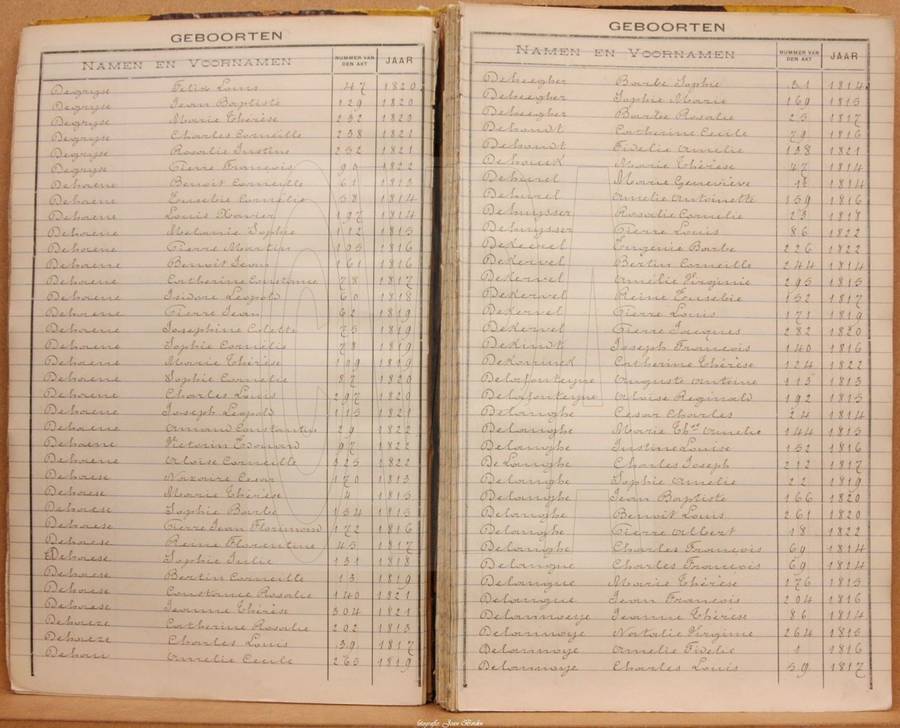 GEBOORTEN
NAMEN EN VOORNAMEN NUMMER VAN DEN AKT JAAR
Degryse Felix Louis 47 1820
Degryse Jean Baptiste 129 1820
Degryse Marie Thérèse 232 1820
Degryse Charles Corneille 238 1821
Degryse Rosalie Justine 252 1821
Degryse Pierre François 90 1822
Dehaene Benoit Corneille 61 1813
Dehaene Eusebie Cornelie 58 1814
Dehaene Louis Xavier 197 1814
Dehaene Melanie Sophie 112 1815
Dehaene Pierre Martin 195 1816
Dehaene Benoit Jean 161 1816
Dehaene Catherine Constance 78 1817
Dehaene Isidore Leopold 60 1818
Dehaene Pierre Jean 62 1819
Dehaene Josephine Colette 75 1819
Dehaene Sophie Cornelie 78 1819
Dehaene Marie Thérèse 199 1819
Dehaene Sophie Cornelie 87 1820
Dehaene Charles Louis 297 1820
Dehaene Joseph Leopold 115 1821
Dehaene Amand Constantin 29 1822
Dehaene Victorin Edouard 97 1822
Dehaene Aloise Corneille 325 1822
Dehaese Nazaire Cesar 170 1813
Dehaese Marie Thérèse 4 1815
Dehaese Sophie Barbe 154 1815
Dehaese Pierre Jean Florimond 172 1816
Dehaese Reine Florentine 45 1817
Dehaese Sophie Julie 131 1818
Dehaese Bertin Corneille 13 1819
Dehaese Constance Rosalie 140 1821
Dehaese Jeanne Thérèse 304 1821
Dehaeze Catherine Rosalie 202 1813
Dehaeze Charles Louis 39 1817
Amelie Cecile 265 1819
GEBOORTEN
NAMEN EN VOORNAMEN NUMMER VAN DEN AKT JAAR
Deheegher Barbe Sophie 31 1814
Deheegher Sophie Marie 169 1815
Deheegher Barbe Rosalie 25 1817
Dehondt Catherine Cecile 79 1816
Dehondt Fidelie Amelie 138 1821
Dehouck Marie Thérèse 47 1814
Dehurel Marie Geneviève 18 1814
Dehurel Amelie Antoinette 159 1816
Dehuysser Rosalie Cornelie 23 1818
Dehuysser Pierre Louis 86 1822
DeKeirel Eugenie Barbe 226 1822
DeKervel Bertin Corneille 244 1814
DeKervel Amelie Virginie 295 1815
DeKervel Reine Eusebie 152 1817
DeKervel Pierre Louis 171 1819
DeKervel Pierre Jacques 282 1820
DeKindt Joseph François 140 1816
DeKoninck Catherine Thérèse 124 1822
Delafonteyne Auguste Antoine 113 1813
Delafonteyne Aloise Reginald 192 1815
Delanghe César Charles 24 1814
Delanghe Marie Th. Amelie 144 1815
Delanghe Justine Louise 152 1816
Delanghe Charles Joseph 212 1817
Delanghe Sophie Amelie 22 1819
Delanghe Jean Baptiste 166 1820
Delanghe Benoit Louis 261 1820
Delanghe Pierre Albert 18 1822
Delanghe Charles François 69 1814
Delangue Charles François 69 1814
Delangue Marie Thérèse 176 1815
Delangue Jean François 204 1816
Delannoeye Jeanne Thérèse 86 1814
Delannoye Natalie Virginie 264 1815
Delannoye Amelie Fidelie 1 1816
Delannoye Charles Louis 59 1817